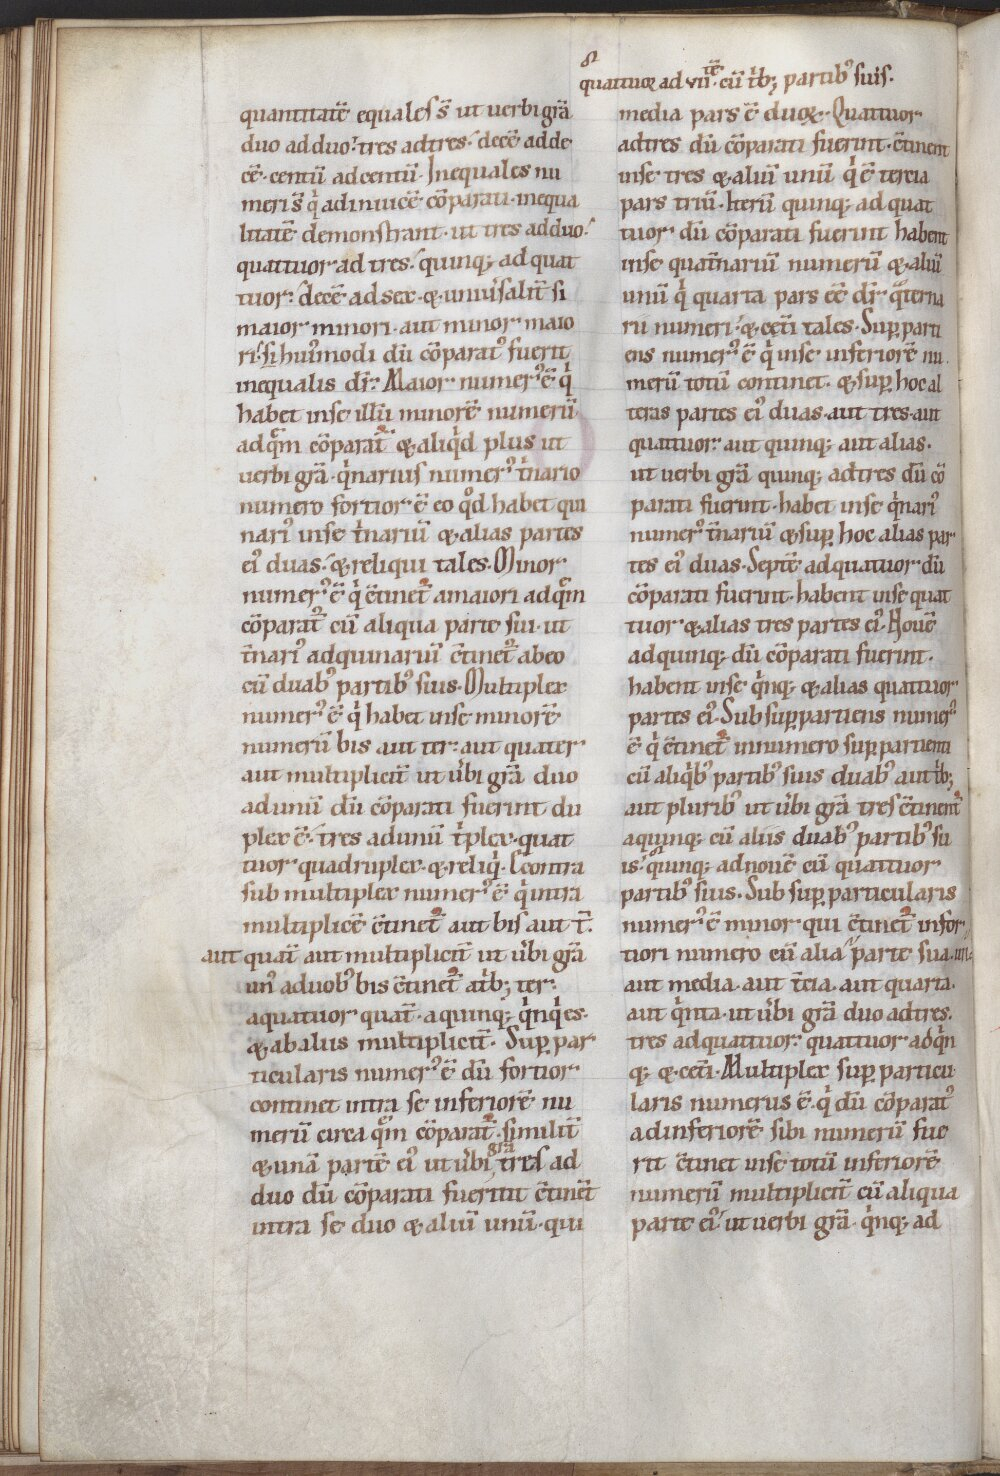 quattuor ad vii.tē cū trib; partib᾿ suis.
quantitatē equales s̄ ut uerbi grā
duo ad duo. tres ad tres. decē ad de
cē. centū ad centū. Inequales nu
meri s̄ qi adinuicē cōparati. inequa
litatē demonstrant. ut tres ad duo.
quattuor ad tres. quinq; ad quat
tuor. decē ad sex. & uniūsalit̄ si
maior minori. aut minor maio
ri. si hui᾿modi dū cōparat᾿ fuerit
inequalis dr̄. Maior numer᾿ ē qi
habet inse illū minorē numerū
ad quā cōparat᾿ & aliqid plus ut
uerbi grā. qinarius numer᾿ t̄nario
numero fortior ē eo qd habet qui
nari᾿ inse t̄nariū & alias partes
ei᾿ duas. & reliqui tales. Minor
numer᾿ ē qi c̄tinet᾿ a maiori ad quē
cōparat᾿ cū aliqua parte sui. ut
t̄nari᾿ ad quinariū c̄tinet᾿ ab eo
cū duab᾿ partib᾿ suis. Multiplex
numer᾿ ē qi habet inse minorē
numerū bis aut ter. aut quater
aut multiplicit̄ ut ūbi grā duo
ad unū dū cōparati fuerint du
plex ē. tres ad unū tiplex. quat
tuor quadruplex. & reliqi. Econtra
sub multiplex numer᾿ ē qi intra
multiplicē c̄tinet᾿ aut bis aut t̄.
aut quat̄ aut multiplicit̄ ut ūbi grā
un᾿ a duob᾿ bis c̄tinet᾿ a trib; ter.
a quatuor quat̄. a quinq; qinqies.
& ab aliis multiplicit̄. Sup par
ticularis numer᾿ ē dū fortior
continet intra se inferiorē nu
merū circa quē cōparat᾿. similit̄
& unā partē ei᾿ ut ūbi grā tres ad
duo dū cōparati fuerint c̄tinēt
intra se duo & aliū unū. qui
media pars ē duox. Quattuor
ad tres dū cōparati fuerint. c̄tinent
inse tres & aliū unū qi ē tercia
pars triū. Iterū quinq; ad quat
tuor dū cōparati fuerint habent
inse quat̄nariū numerū & aliū
unū qi quarta pars eē dr̄ qaterna
rii numeri. & cet̄i tales. Sup parti
ens numer᾿ ē qi inse inferiorē nu
merū totū continet. & sup hoc al
teras partes ei᾿ duas. aut tres. aut
quattuor. aut quinq; aut alias.
ut uerbi grā quinq; ad tres dū cō
parati fuerint. habet inse qinari᾿
numer᾿ t̄nariū & sup hoc alias par
tes ei᾿ duas. Septē ad quatuor dū
cōparati fuerint. habent inse quat
tuor & alias tres partes ei᾿. Nouē
ad quinq; dū cōparati fuerint.
habent inse qinq; & alias quattuor
partes ei᾿. Sub suppartiens numer᾿
ē qi c̄tinet᾿ innumero suppartienti
cū aliqib᾿ partib᾿ suis duab᾿ aut trib;
aut plurib᾿ ut ūbi grā tres c̄tinent᾿
a quinq; cū aliis duab᾿ partib᾿ su
is. quinq; ad nouē cū quattuor
partib᾿ suis. Sub sup particularis
numer᾿ ē minor. qui c̄tinet᾿ infor
tiori numero cū alia parte sua.
aut media. aut t̄cia. aut quarta.
aut qinta. ut ūbi grā duo ad tres.
tres ad quattuor. quattuor ad qin
q; & cet̄i. Multiplex sup particu
laris numerus ē. qi dū cōparat᾿
ad inferiorē sibi numerū fue
rit c̄tinet inse totū inferiorē
numerū multiplicit̄ cū aliqua
parte ei᾿. ut uerbi grā. qinq; ad